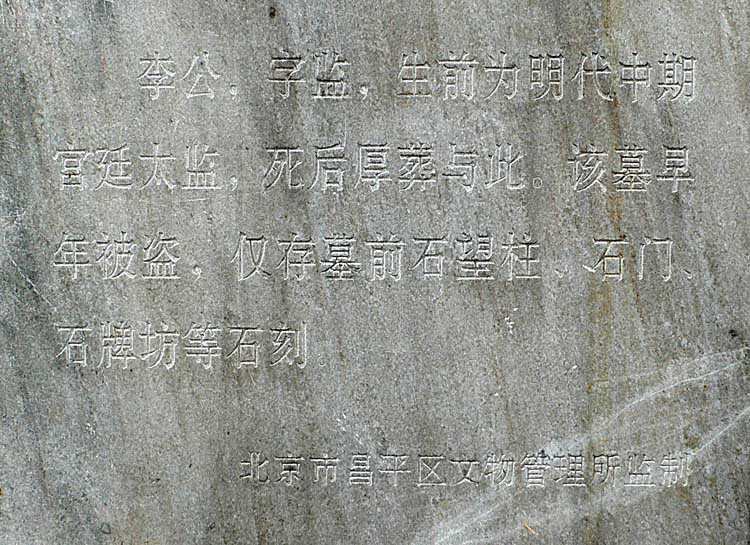 李公，字监，生前为明代中期
宫廷太监，死后厚葬与此。该墓早
年被盗，仅存墓前石望柱、石门、
石牌坊等石刻
北京市昌平区文物管理所监制